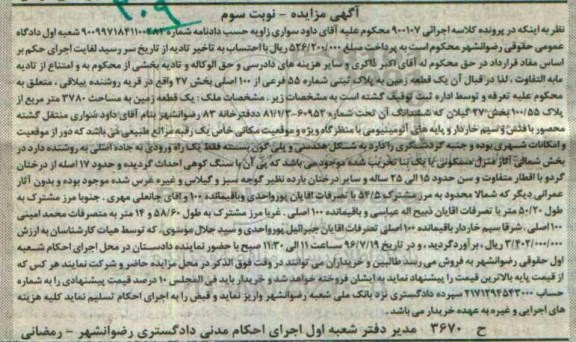 ۳۰۹
آگهی مزایده - نوبت سوم
نظر به اینکه در پرونده کلاسه اجرائی ۹۰۰۱۰۷ محکوم علیه آقای داود سواری زاویه حسب دادنامه شماره ۹۰۰۹۹۷۱۸۴۱۱۰۰۴۸۲ شعبه اول دادگاه
عمومی حقوقی رضوانشهر محکوم است به پرداخت مبلغ ۵۲۶/۲۰۰/۰۰۰ ریال با احتساب به تاخیر تادیه از تاریخ سر رسید لغایت اجرای حکم بر
اساس مفاد قرارداد در حق محکوم له آقای اکبر ذاکری و سایر هزینه های دادرسی و حق الوکاله و تادیه بخشی از محکوم به و امتناع از تادیه
مابه التفاوت ، لذا در قبال آن یک قطعه زمین به پلاک ثبتی شماره ۵۵ فرعی از ۱۰۰ اصلی بخش ۲۷ واقع در قریه روشنده ییلاقی ، متعلق به
محکوم علیه تعرفه و توسط اداره ثبت توقیف گشته است به مشخصات زیر . مشخصات ملک : یک قطعه زمین به مساحت ۳۷۸۰ متر مربع از
پلاک ۱۰۰/۵۵ بخش ۲۷ گیلان که ششدانگ آن تحت شماره ۶۰۹۵۳-۸۷/۷/۳ دفترخانه ۸۳ رضوانشهر بنام آقای داود سواری منتقل گشته
محصور با فنس و سیم خاردار و پایه های آلومینیومی با منظرگاه ویژه و موقعیت مکانی خاص یک رقبه مراتع طبیعی می باشد که دور از موقعیت
و امکانات شهری بوده و جنبه گردشگری را دارد به شکل هندسی و پلی گون بسته فقط یک راه ورودی به جاده اصلی به روشنده دارد در
بخش شمالی آثار منزل مسکونی با یک بنا تخریب شده موجود می باشد که پی آن با سنگ کوهی احداث گردیده و حدود ۱۷ اصله از درختان
گردو با اقطار متفاوت و سن حدود ۱۵ الی ۲۵ ساله و سایر درختان بارده نظیر گوجه سبز و گیلاس و غیره غرس شده موجود بوده و بدون آثار
عمرانی دیگر که شمالا محدود به مرز مشترک ۵۴/۵ با تصرفات آقایان پورواحدی و باقیمانده ۱۰۰ و آقای جانعلی مهری . جنوبا مرز مشترک به
طول ۵۰/۲۰ متر با تصرفات آقایان ذبیح اله عباسی و باقیمانده ۱۰۰ اصلی . غربا مرز مشترک به طول ۵۸/۶۰ و ۱۴ متر به متصرفات محمد امینی
۱۰۰ اصلی . شرقا سیم خاردار باقیمانده ۱۰۰ اصلی تصرفات آقایان جبرائیل پورواحدی و سید جلال موسوی که توسط هیات کارشناسان به ارزش
۲/۴۰۲/۰۰۰/۰۰۰ ریال ، برآوردگردید . و در تاریخ ۹۶/۷/۱۹ ساعت ۱۱ الی ۱۱:۳۰ صبح با حضور نماینده دادستان در محل اجرای احکام شعبه
اول حقوقی رضوانشهر به فروش می رسد طالبین و خریداران می توانند در وقت فوق الذکر در محل مزایده حاضر و شرکت نمایند هر کس که
از قیمت پایه بالاترین قیمت را پیشنهاد نماید به ایشان فروخته خواهد شد و خریدار باید فی المجلس ۱۰ درصد قیمت پیشنهادی را به شماره
حساب ۲۱۷۱۲۹۴۵۴۳۰۰۰ سپرده دادگستری نزد بانک ملی شعبه رضوانشهر واریز نماید و قبض را به اجرای احکام تسلیم نماید کلیه هزینه
های اجرایی و غیره به عهده خریدار می باشد .
ح ۳۶۷۰ مدیر دفتر شعبه اول اجرای احکام مدنی دادگستری رضوانشهر - رمضانی